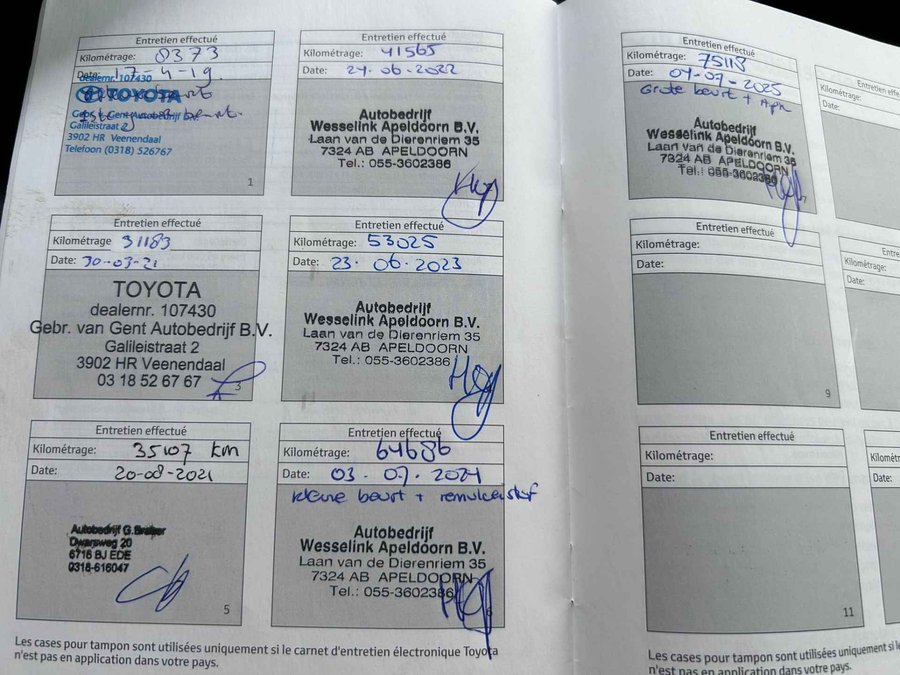 Entretien effectué
Kilométrage: 8373
Date: 17-4-19.
dealernr. 107430
TOYOTA
Gebr. Gent Autobedrijf B.V.
Galileistraat 2
3902 HR Veenendaal
Telefoon (0318) 526767
1
Entretien effectué
Kilométrage 31183
Date: 30-03-21
TOYOTA
dealernr. 107430
Gebr. van Gent Autobedrijf B.V.
Galileistraat 2
3902 HR Veenendaal
03 18 52 67 67
3
Entretien effectué
Kilométrage: 35107 km
Date: 20-08-2021
Autobedrijf G.
Dwarsweg 20
6716 BJ EDE
0318-616047
5
Entretien effectué
Kilométrage: 41565
Date: 24-06-2022
Autobedrijf
Wesselink Apeldoorn B.V.
Laan van de Dierenriem 35
7324 AB APELDOORN
Tel.: 055-3602386
Entretien effectué
Kilométrage: 53025
Date: 23-06-2023
Autobedrijf
Wesselink Apeldoorn B.V.
Laan van de Dierenriem 35
7324 AB APELDOORN
Tel.: 055-3602386
Entretien effectué
Kilométrage: 64686
Date: 03-07-2024
kleine beurt + remvloeistof
Autobedrijf
Wesselink Apeldoorn B.V.
Laan van de Dierenriem 35
7324 AB APELDOORN
Tel.: 055-3602386
6
Les cases pour tampon sont utilisées uniquement si le carnet d'entretien électronique Toyota
n'est pas en application dans votre pays.
Entretien effectué
Kilométrage: 75118
Date: 04-07-2025
Grote beurt + Apk
Autobedrijf
Wesselink Apeldoorn B.V.
Laan van de Dierenriem 35
7324 AB APELDOORN
Tel.: 055-3602386
7
Entretien effectué
Kilométrage:
Date:
9
Entretien effectué
Kilométrage:
Date:
11
Entretien effe
Kilométrage:
Date:
Entre
Kilométrage:
Date:
Kilomét
Date:
Les cases pour tampon sont utilisées uniquement si le
n'est pas en application dans votre pays.